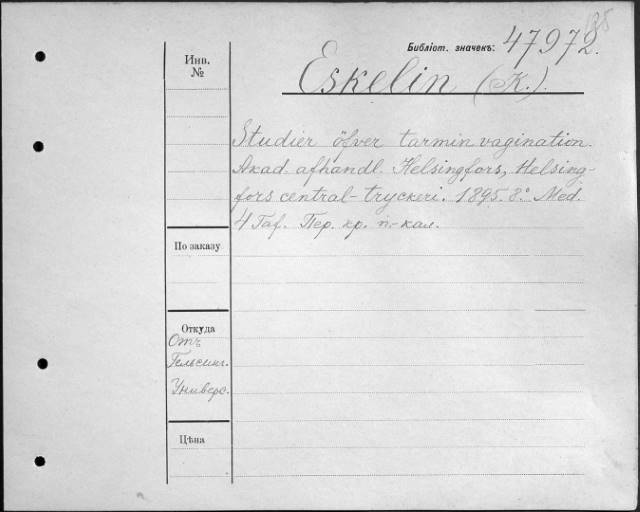 Библіот. значекъ: 47972.
Инв.
№
Eskelin (K.).
Studier öfver tarminvagination.
Akad. afhandl. Helsingfors, Helsing-
fors central-tryckeri. 1895. 8.° Med.
4 Taf. Пер. хр. п.-кал.
По заказу
Откуда
Отъ
Гельсинг.
Универс.
Цѣна